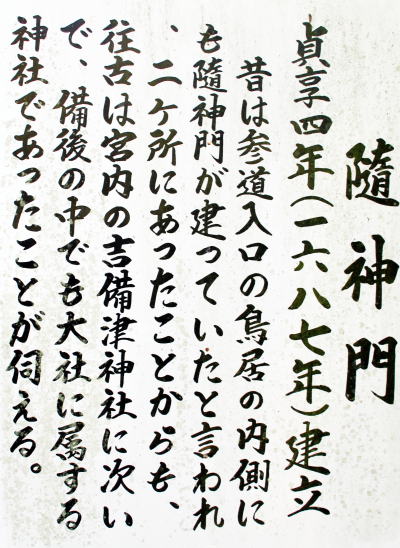 隨神門
貞享四年(一六八七年)建立
昔は参道入口の鳥居の内側に
も隨神門が建っていたと言われ
、二ケ所にあったことからも、
往古は宮内の吉備津神社に次い
で、備後の中でも大社に属する
神社であったことが伺える。